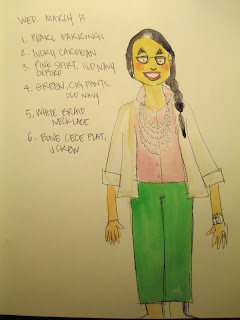 WED. MARCH 15
1. PEARL EARRINGS
2. IVORY CARDIGAN
3. PINK SHIRT, OLD NAVY
OXFORD
4. GREEN, CIG. PANTS,
OLD NAVY
5. WHITE BRAID
NECKLACE
6. BONE CECE FLAT,
J.CREW